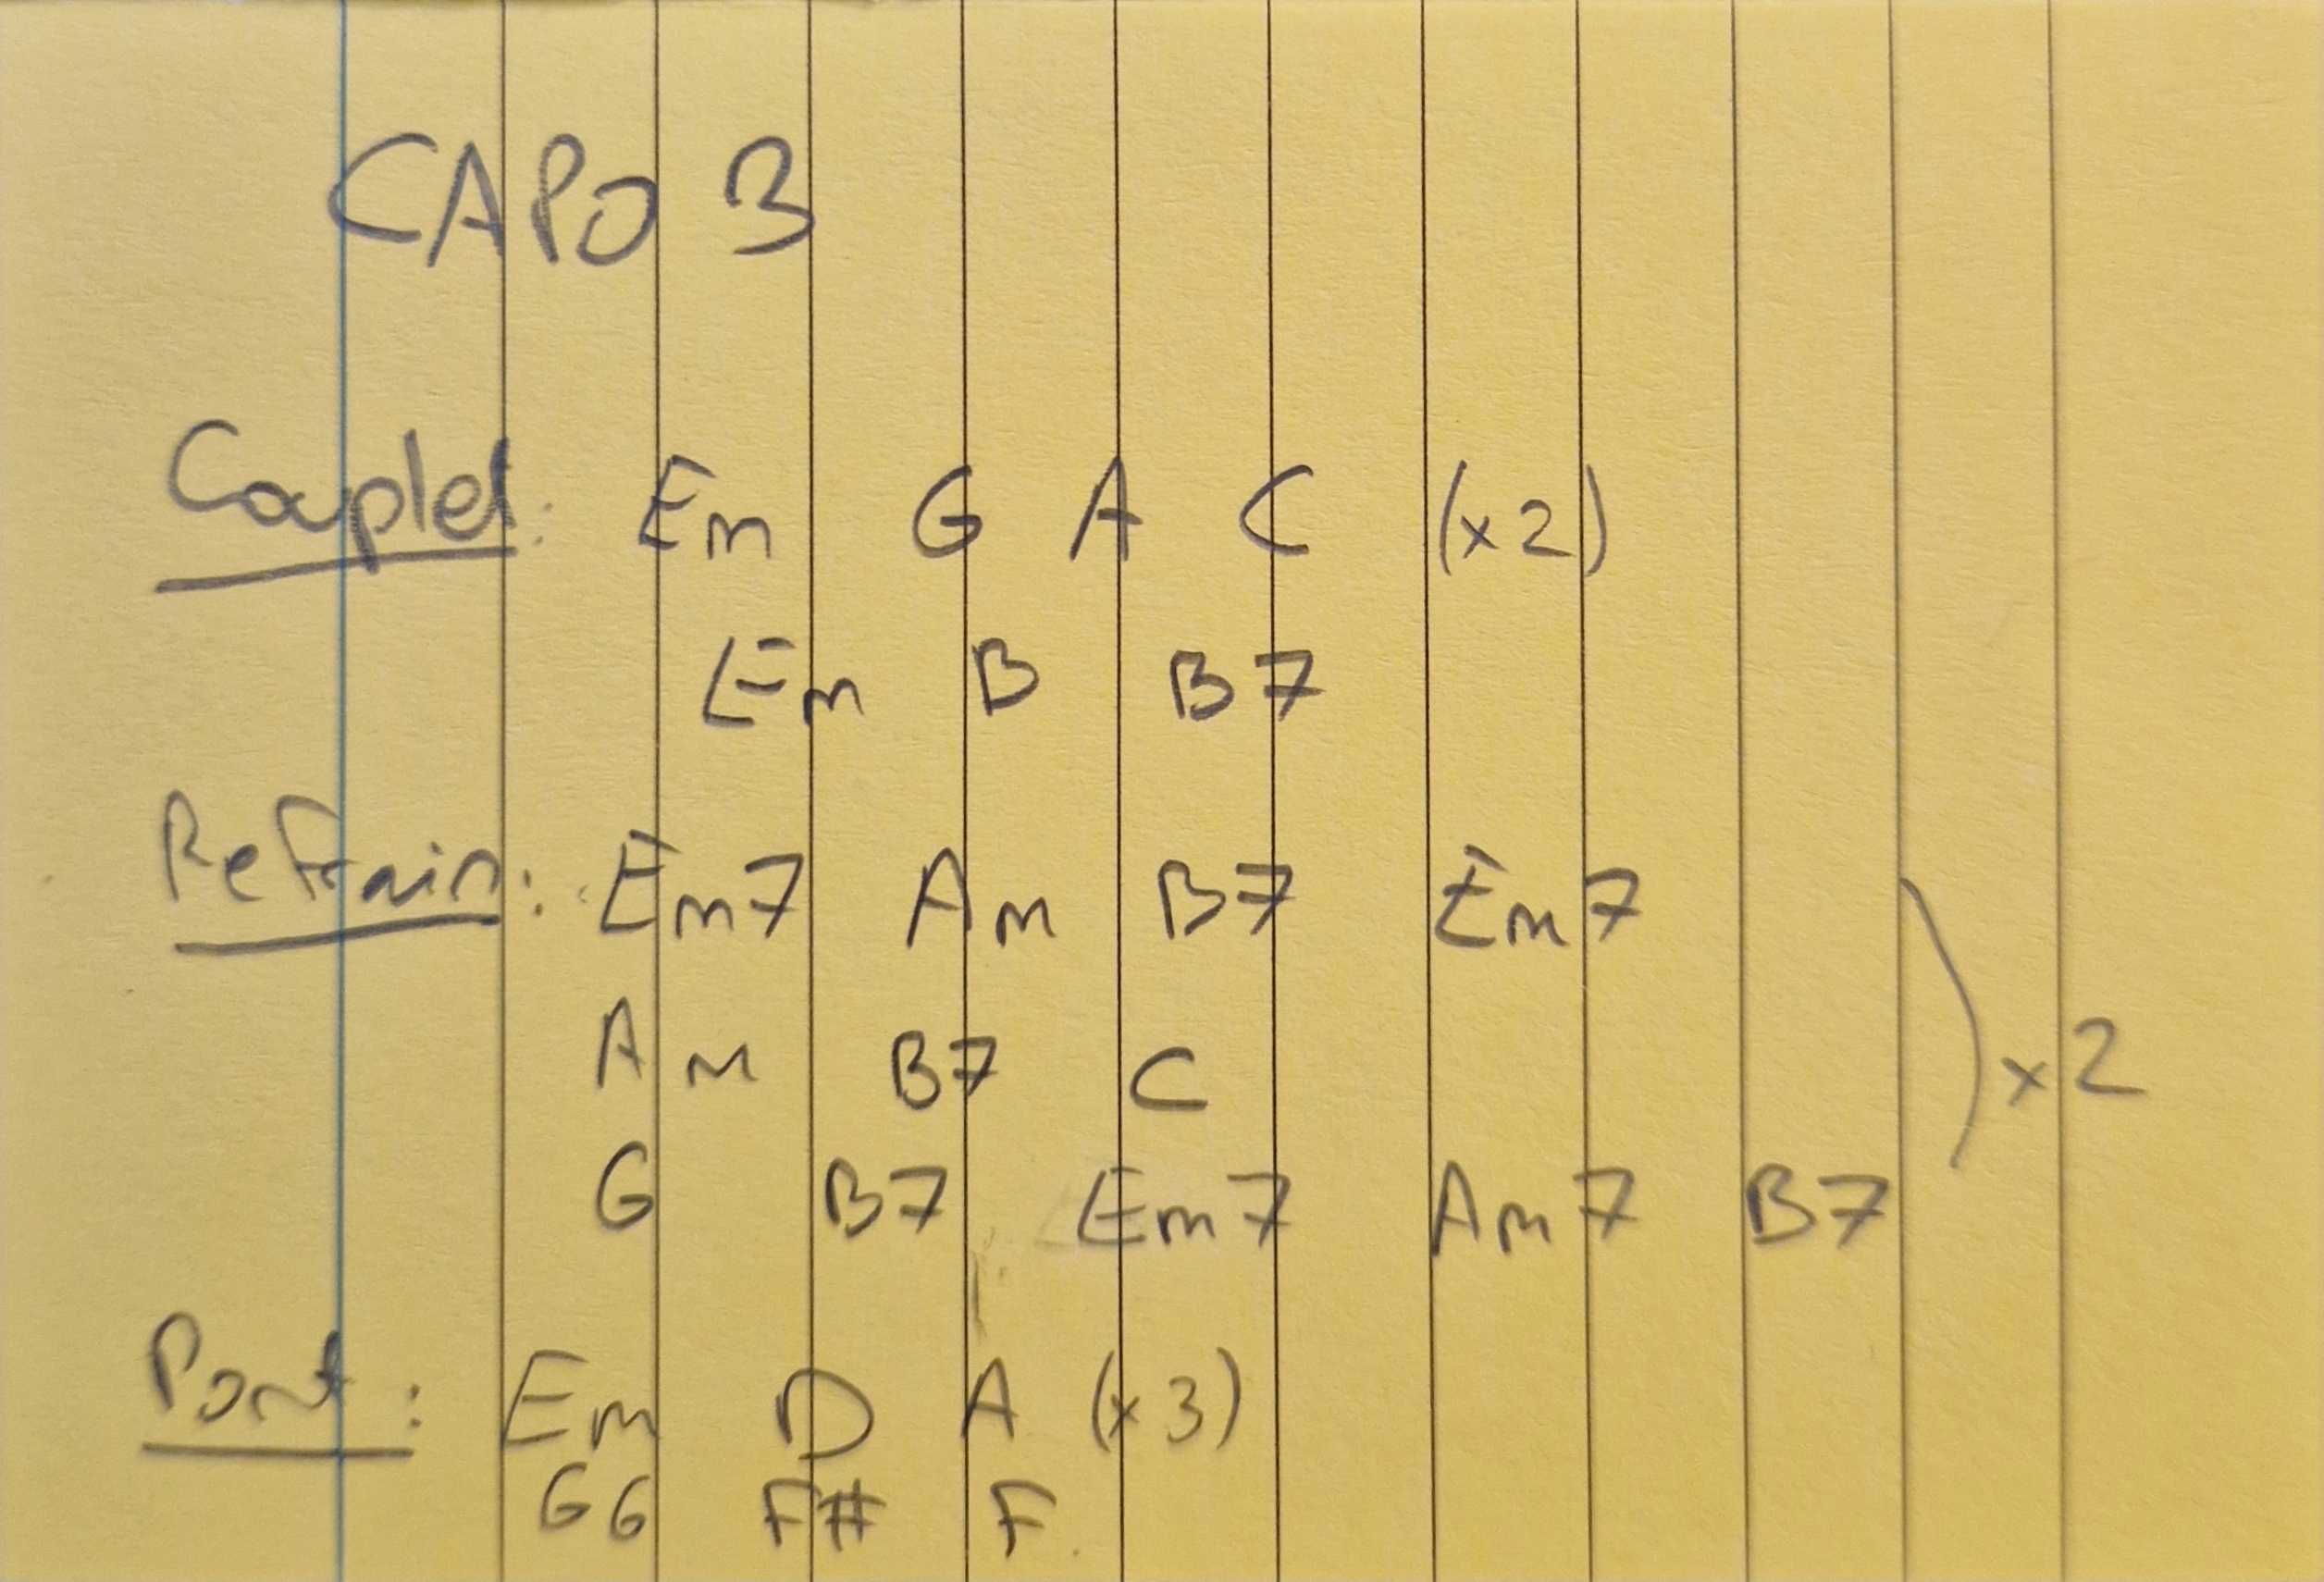 CAPO 3
Couplet: Em G A C (x2)
Em B B7
Refrain: Em7 Am B7 Em7
Am B7 C
G B7 Em7 Am7 B7
) x2
Pont: Em D A (x3)
G6 F# F